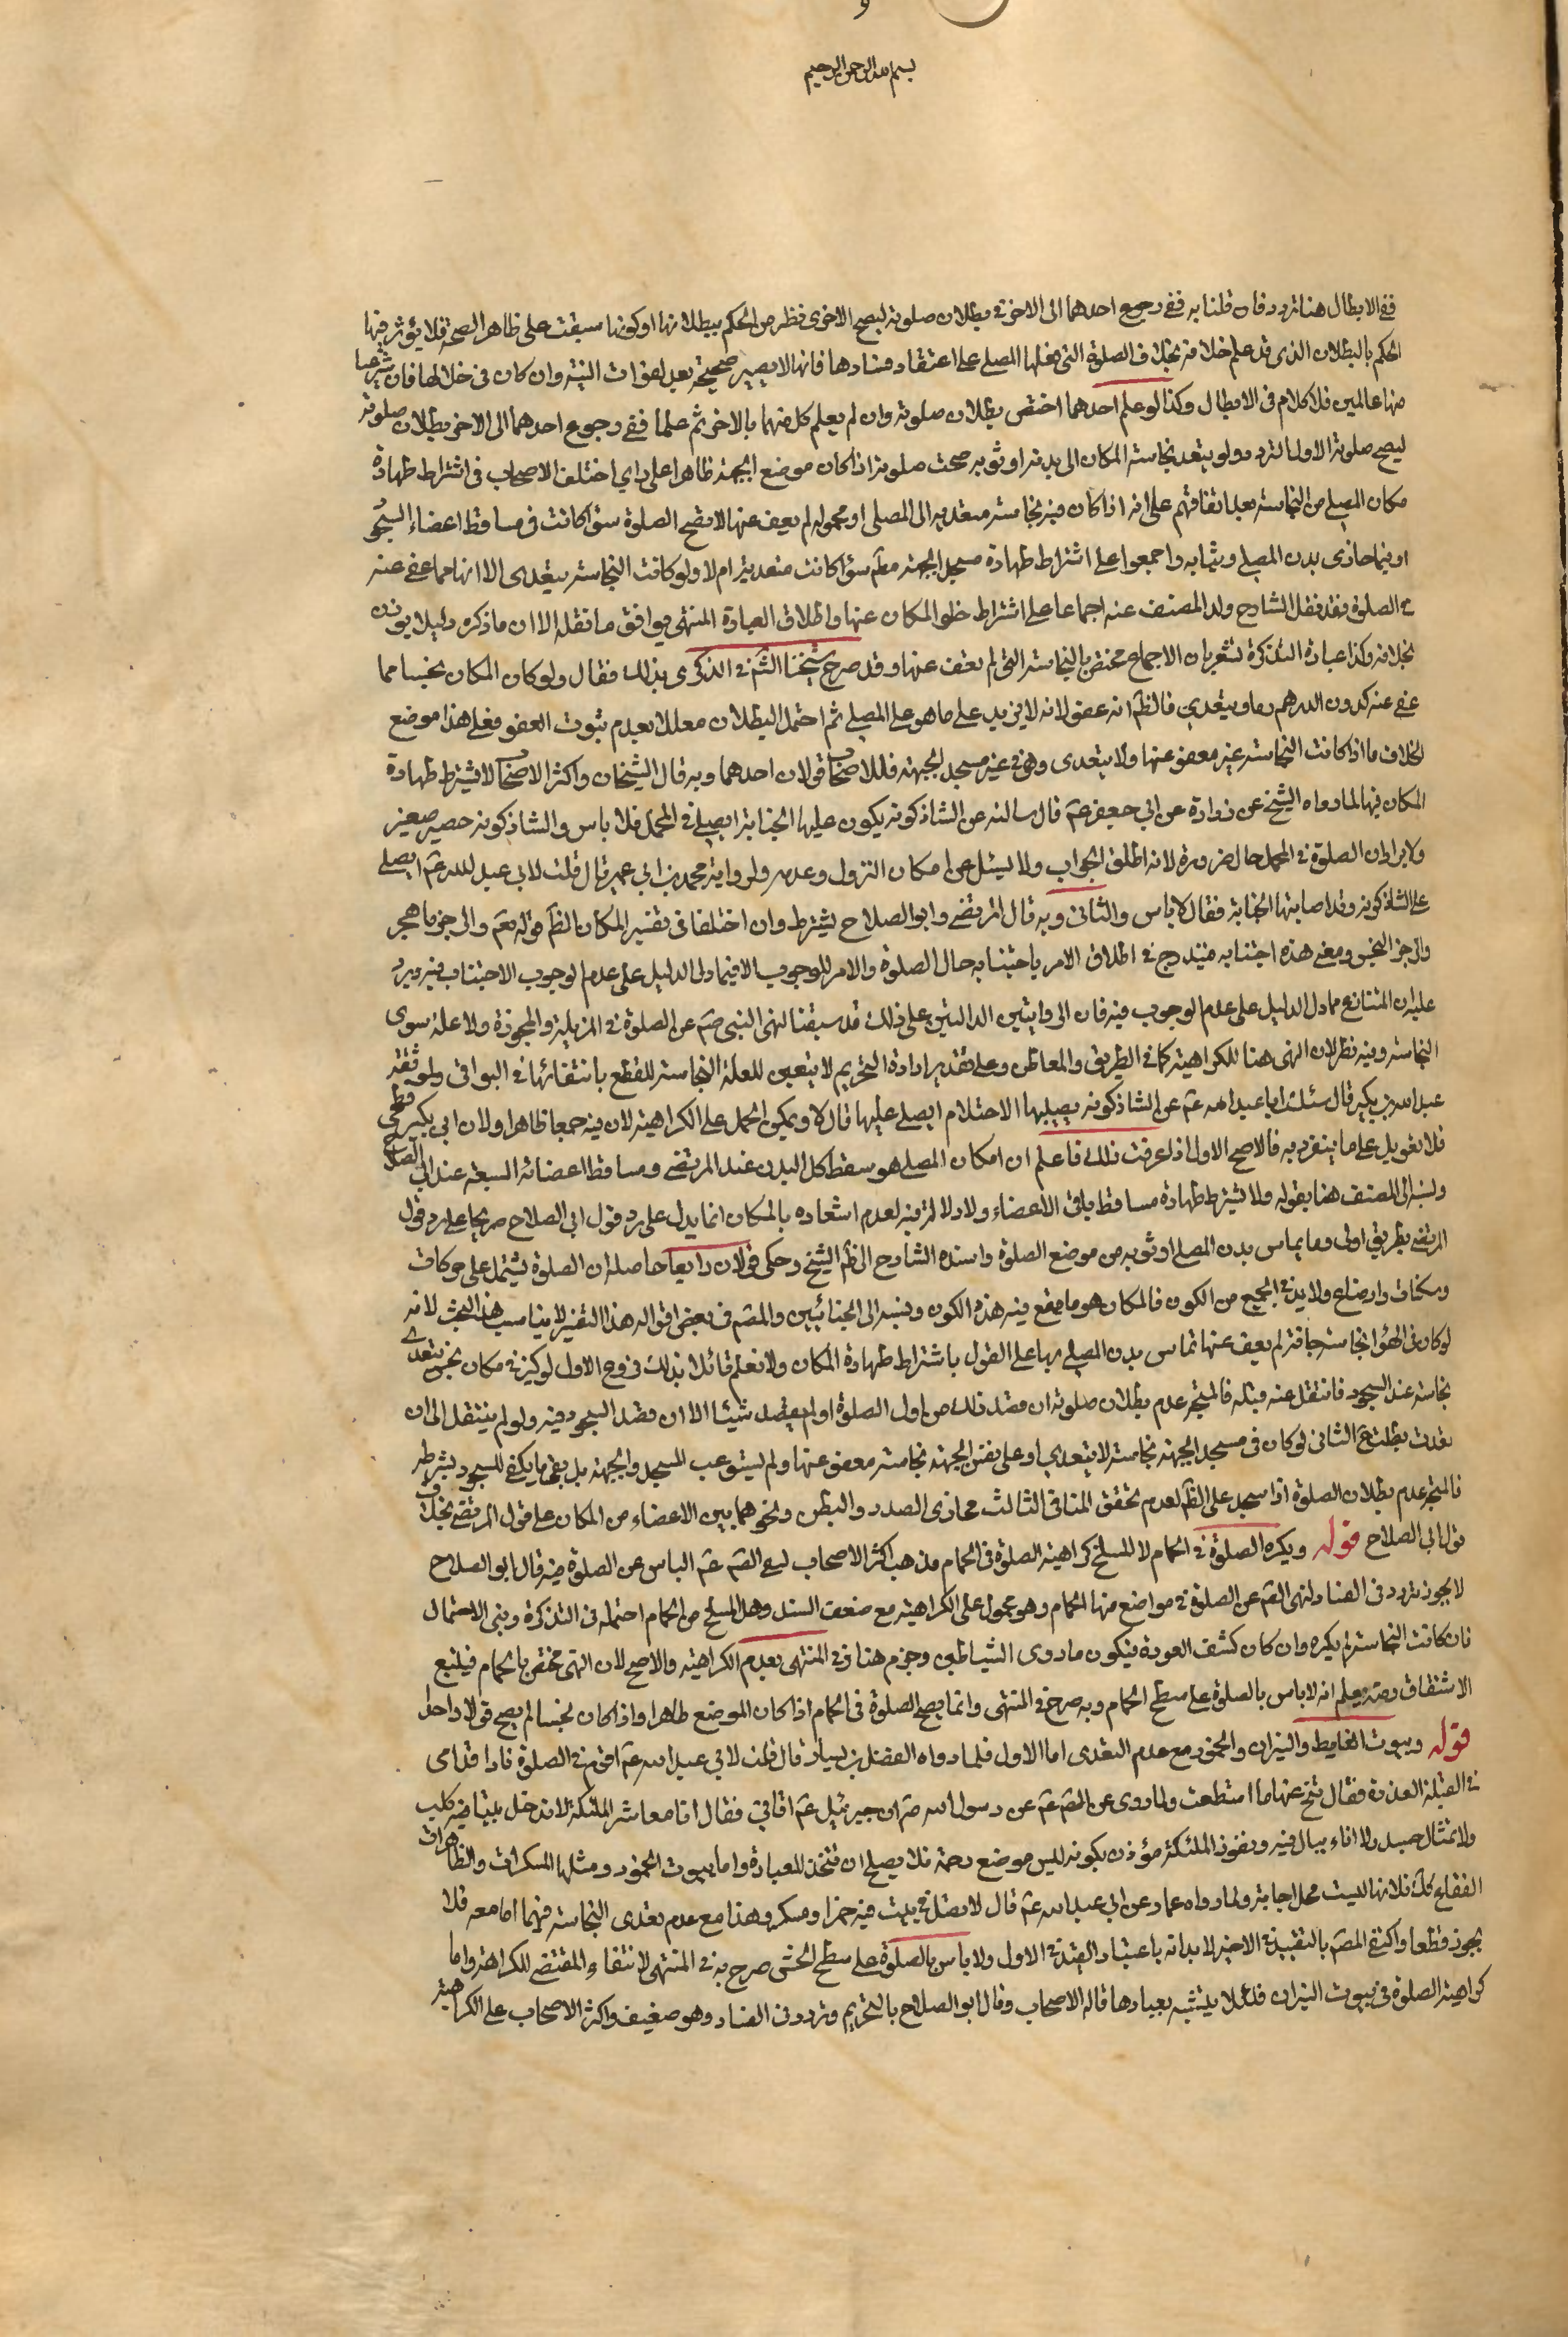 بسم الله الرحمن الرحيم
ففي الابطال هنا تردد فان قلنا به ففي رجوع احدهما الى الاخر في بطلان صلوته ليصح الاخرى نظر من الحكم ببطلانها او كونها سبقت على ظاهر الصحة فلا يؤثر فيها
الحكم بالبطلان الذي قد علم خلافه بخلاف الصلوة التي دخلها المصلي على اعتقاد فسادها فانها لا يصير صحيحة بعد لفوات النية وان كان في خلالها فان شرعا
فيها عالمين فلا كلام في الابطال وكذا لو علم احدهما اختص بطلان صلوته وان لم يعلم كل منهما بالاخر ثم علما ففي رجوع احدهما الى الاخر بطلان صلوته
ليصح صلوته الاول التردد ولو لم يتعد نجاسة المكان الى بدنه او ثوبه صحت صلوته اذا كان موضع الجبهة ظاهرا على راي اختلف الاصحاب في اشتراط طهارة
مكان المصلي من النجاسة بعد اتفاقهم على انه اذا كان فيه نجاسة متعدية الى المصلي او محموله لم يعف عنها لا تصح الصلوة سواء كانت في مساقط اعضاء السجود
او فيما حاذى بدن المصلي وثيابه واجمعوا على اشتراط طهارة مسجد الجبهة مطم سواء كانت متعدية ام لا ولو كانت النجاسة يتعدى الا انها مما عفي عنه
في الصلوة فقد نقل الشارح ولد المصنف عنه اجماعا على اشتراط خلو المكان عنها واطلاق العبارة المنتهى يوافق ما نقله الا ان ما ذكره دليلا يؤذن
بخلافه وكذا عبارة التذكرة تشعر بان الاجماع مختص بالنجاسة التي لم يعف عنها وقد صرح شيخنا الش في الذكرى بذلك فقال ولو كان المكان نجسا مما
عفي عنه كدون الدرهم دما ويتعدى فالظم انه عفو لانه لا يزيد على ما هو على المصلي ثم احتمل البطلان معللا بعدم ثبوت العفو فعلى هذا موضع
الخلاف ما اذا كانت النجاسة غير معفو عنها ولا يتعدى وهي في غير مسجد الجبهة فللاصحاب قولان احدهما وبه قال الشيخان واكثر الاصحاب لا يشترط طهارة
المكان فيها لما رواه الشيخ عن زرارة عن ابي جعفر عم قال سالته عن الشاذكونه يكون عليها الجنابة ايصلي في المحمل فلا باس والشاذكونه حصير صغير
ولا يراد ان الصلوة في المحمل حال ضرورة لانه اطلق الجواب ولا ليسئل عن امكان النزول وعدمه ولرواية محمد بن ابي عمير قال قلت لابي عبد الله عم ايصلي
على الشاذكونه وقد اصابتها الجنابة فقال لا باس والثاني وبه قال المرتضى وابو الصلاح يشترط وان اختلفا في تفسير المكان لظم قوله تعم والرجز فاهجر
والرجز النجس ومعنى هذه اجتنابه فيندرج في اطلاق الامر باجتنابه حال الصلوة والامر للوجوب الا فيما دل الدليل على عدم الوجوب الاجتناب فيه ويرد
عليه ان المتنازع مما دل الدليل على عدم الوجوب فيه فان الروايتين الدالتين على ذلك قد سبقتا لنهي النبي صم عن الصلوة في المزبلة والمجزرة ولا علة سوى
النجاسة وفيه نظر لان النهي هنا للكراهية كما في الطريق والمعاطن وعلى تقدير ارادة التحريم لا يتعين للعلة النجاسة للقطع بانتفائها في البواقي ولموثقة
عبد الله بن بكير قال سئلت ابا عبد الله عم عن الشاذكونه يصيبها الاحتلام ايصلي عليها قال لا ويمكن الحمل على الكراهية لان فيه جمعا ظاهرا ولان ابي بكير فطحي
فلا تعويل على ما ينفرد به فالاصح الاول اذا عرفت ذلك فاعلم ان امكان المصلي هو سقط كل البدن عند المرتضى ومساقط اعضائه السبعة عند ابي الصلاح
ولينبه المصنف هنا بقوله ولا يشترط طهارة مساقط باقي الاعضاء ولا دلالة فيه لعدم اشعاره بالمكان انما يدل على رد قول ابي الصلاح صريحا على رد قول
المرتضى بطريق اولى وما يماس بدن المصلي او ثوبه من موضع الصلوة واسنده الشارح الى ظم الشيخ وحكى قولان رابعا حاصله ان الصلوة يشتمل على حركات
وسكنات واوضاع ولا بد في الجميع من الكون فالمكان هو ما يقع فيه هذه الكون وينسبه الى الجبائيين والمصم في بعض اقواله هذا التفسير لا يناسب هذا البحث لانه
لو كان في الهواء نجاسة جافة لم يعف عنها تماس بدن المصلي بها على القول باشتراط طهارة المكان ولا نعلم قائلا بذلك فروع الاول لو كبر في مكان نجس يتعدى
نجاسة عند السجود فانتقل عنه قبله فالمتجه عدم بطلان صلوته ان قصد ذلك من اول الصلوة او لم يقصد شيئا الا ان قصد السجود فيه ولو لم ينتقل الى ان
تعدت بطلت ع الثاني لو كان في مسجد الجبهة نجاسة لا يتعدى او على نفس الجبهة نجاسة معفو عنها ولم يستوعب المسجد والجبهة بل بقي ما يكفي للسجود بشرطه
فالمتجه عدم بطلان الصلوة اذا سجد على الظم لعدم تحقق المنافي الثالث محاذى الصدر والبطن ونحوهما بين الاعضاء من المكان على قول المرتضى بخلاف
قول ابي الصلاح قوله ويكره الصلوة في الحمام لا المسلخ كراهية الصلوة في الحمام مذهب اكثر الاصحاب لنفي الصم عم الباس عن الصلوة فيه قال ابو الصلاح
لا يجوز تردد في الفساد لنهي الصم عن الصلوة في مواضع منها الحمام وهو محمول على الكراهية مع ضعف السند وهل المسلخ من الحمام احتمله في التذكرة وبنى الاحتمال
فان كانت النجاسة لم يكره وان كان كشف العورة فيكون ماوى الشياطين وجزم هنا وفي المنتهى بعدم الكراهية والاصح لان النهي مختص بالحمام فيتبع
الاشتقاق ومنه يعلم انه لا باس بالصلوة على سطح الحمام وبه صرح في المنتهى وانما يصح الصلوة في الحمام اذا كان الموضع طاهرا واذا كان نجسا لم يصح قولا واحدا
قوله وبيوت الغايط والنيران والخمور مع عدم التعدى اما الاول فلما رواه الفضل بن يسار قال قلت لابي عبد الله عم اقوم في الصلوة فارا قدامي
في القبلة العذرة فقال تنح عنها ما استطعت ولما روى عن الصم عم عن رسول الله صم ان جبرئيل عم اتاني فقال انا معاشر الملئكة لا ندخل بيتا فيه كلب
ولا تمثال جسد ولا اناء يبال فيه ونفور الملئكة مؤذن بكونه ليس موضع رحمة فلا يصلح ان تتخذ للعبادة واما بيوت الخمور ومثلها المسكرات والظاهر ان
الفقاع كك فلانها ليست محل اجابة ولما رواه عمار عن ابي عبد الله عم قال لا تصل في بيت فيه خمر او مسكر وهذا مع عدم تعدى النجاسة فيهما اما معه فلا
يجوز قطعا واكتفى المصم بالتقييد في الاخير لابدائه باعتبار القيد في الاول ولا باس بالصلوة على سطح الحش صرح به في المنتهى لانتفاء المقتضي للكراهة واما
كراهية الصلوة في بيوت النيران فلئلا يتشبه بعبادها قاله الاصحاب وقال ابو الصلاح بالتحريم وتردد في الفساد وهو ضعيف واكثر الاصحاب على الكراهية